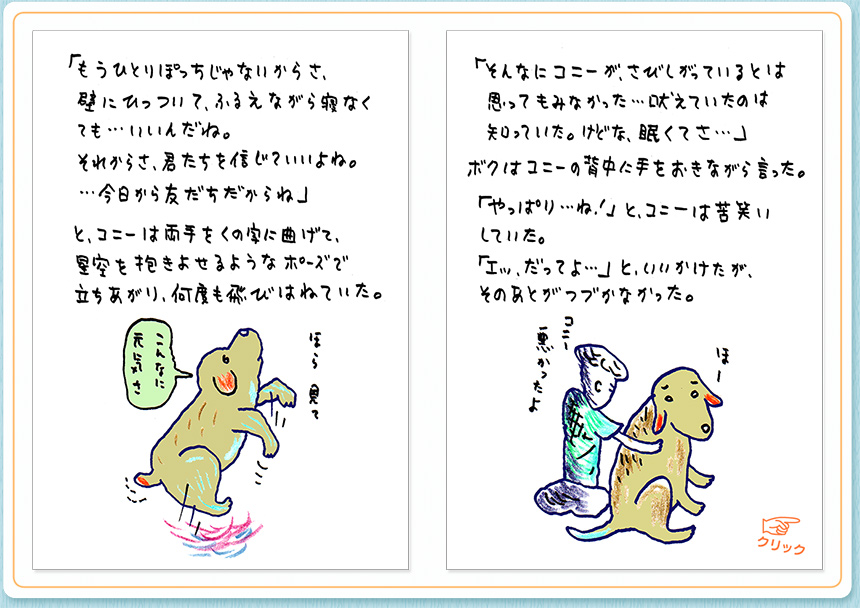 「もうひとりぼっちじゃないからさ、
壁にひっついて、ふるえながら寝なく
ても…いいんだね。
それからさ、君たちを信じていいよね。
…今日から友だちだからね」
と、コニーは両手をくの字に曲げて、
星空を抱きよせるようなポーズで
立ちあがり、何度も飛びはねていた。
こんなに
元気さ
ほら 見て
「そんなにコニーが、さびしがっているとは
思ってもみなかった…吠えていたのは
知っていた。けどな、眠くてさ…」
ボクはコニーの背中に手をおきながら言った。
「やっぱり…ね!」と、コニーは苦笑い
していた。
「エッ、だってよ…」と、いいかけたが、
そのあとがつづかなかった。
コニー
悪かったよ
ほー
クリック